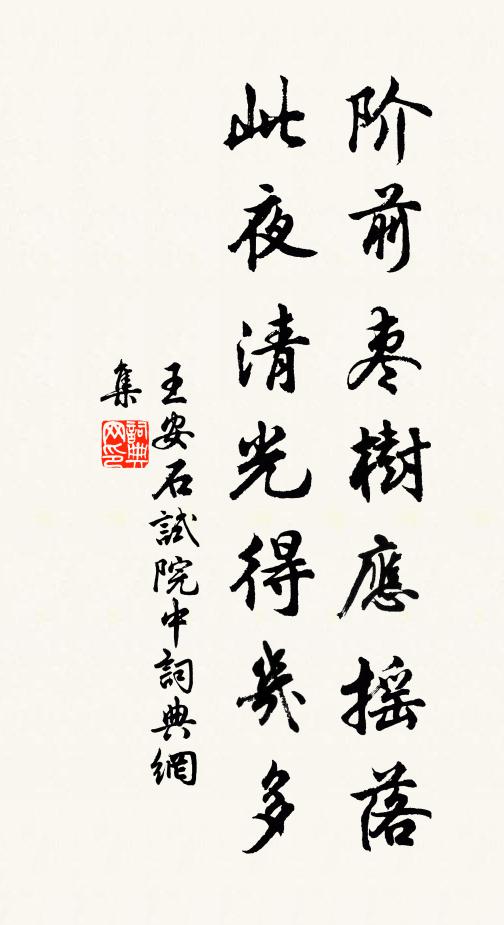 阶前枣樹應摇落
此夜清光得幾多
王安石試院中詞典網
集
詞典
网印